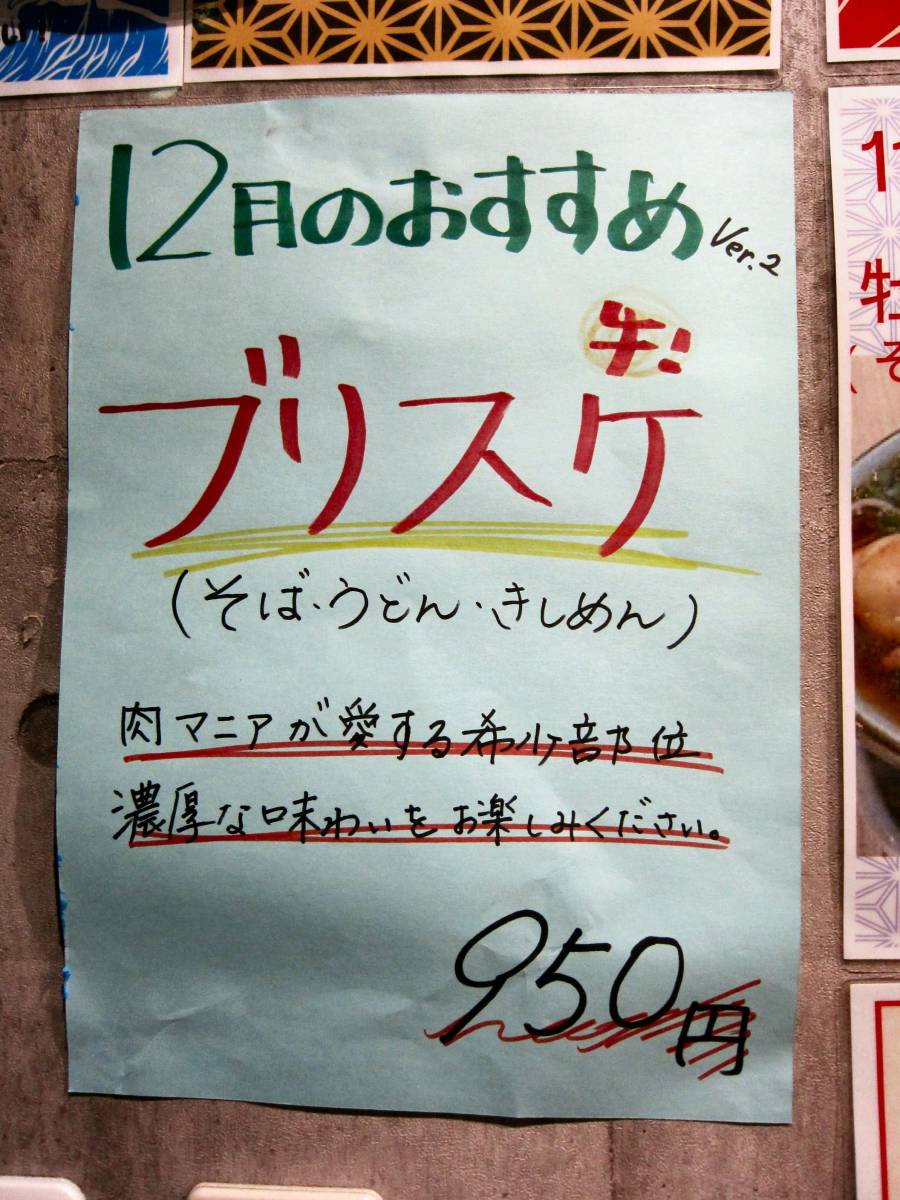 12月のおすすめ Ver.2
牛!
ブリスケ
(そば・うどん・きしめん)
肉マニアが愛する希少部位
濃厚な味わいをお楽しみください。
950円